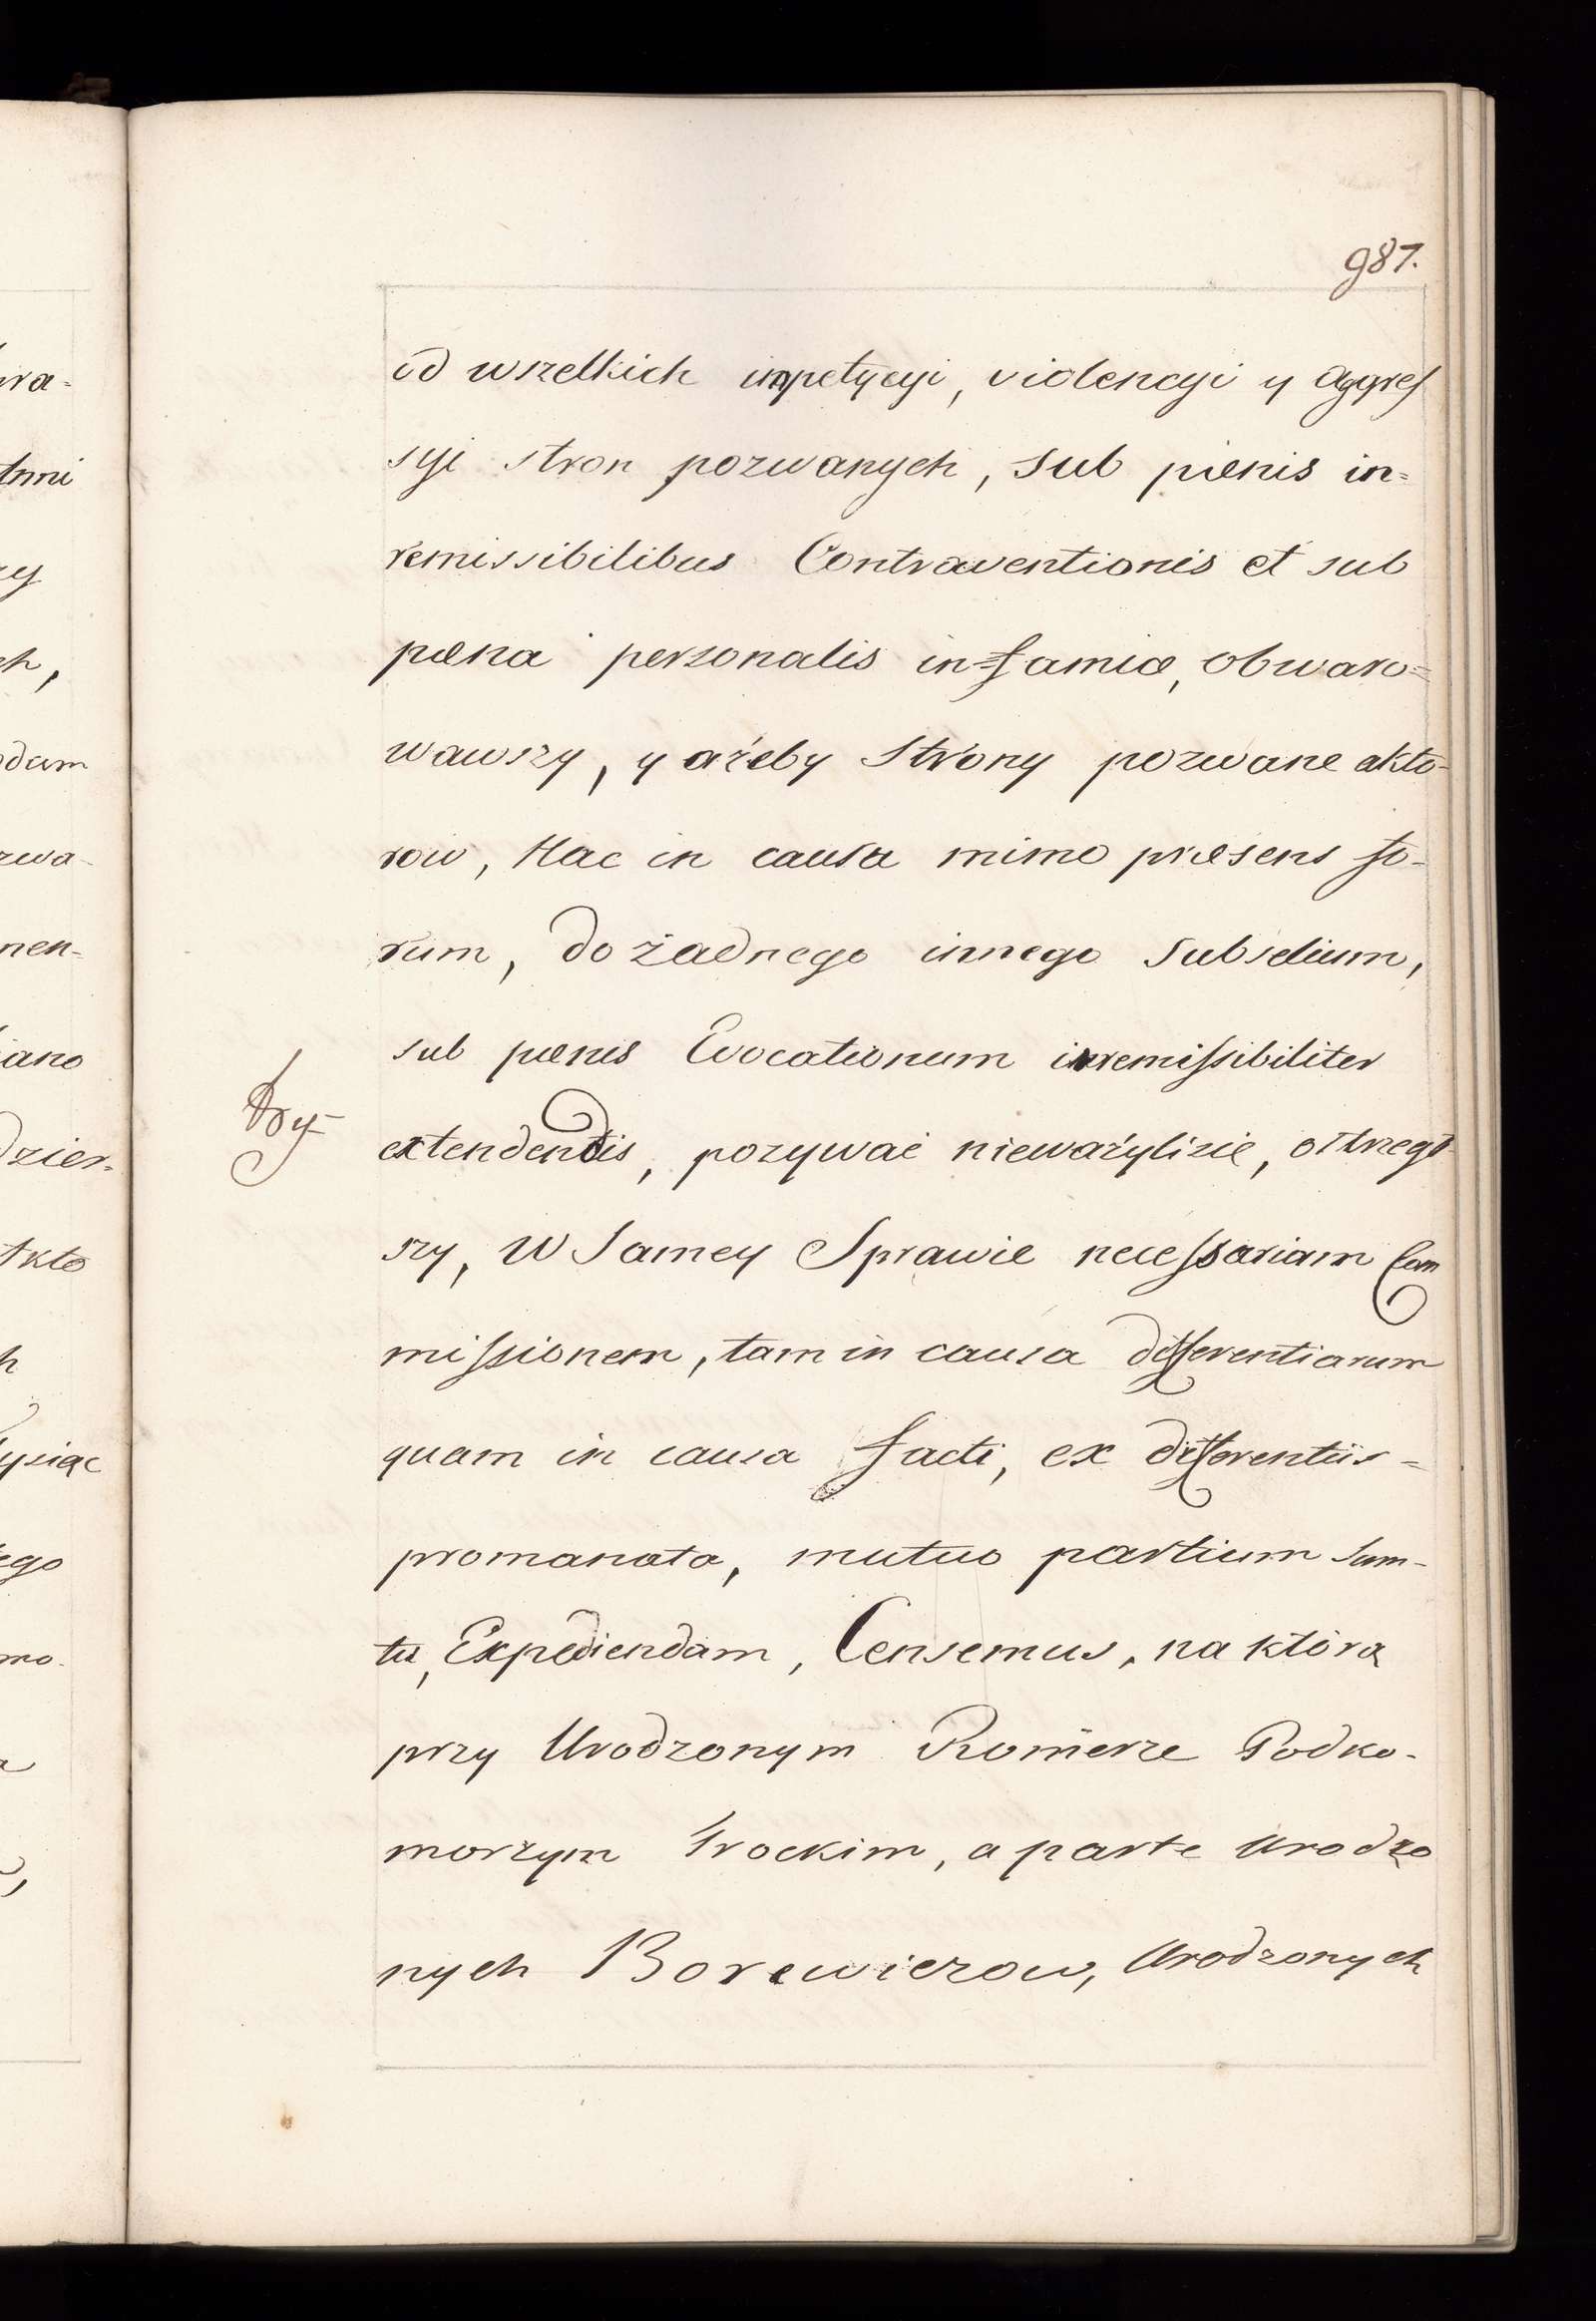 987.
od wszelkich inpetycyi, violencyi y Aggres
syi stron pozwanych, sub pænis in=
remissibilibus Contraventionis et sub
pæna personalis in=famiæ, obwaro=
wawszy, y ażeby Strony pozwane akto-
row, Hac in causa mimo præsens fo-
rum, do żadnego innego Subselium,
sub pænis Evocationum irremissibiliter
extendendis, pozywać nieważylisie, ostrzegł
szy, W Samey Sprawie necessariam Com
missionem, tam in causa differentiarum
quam in causa facti, ex differentiis =
promanata, mutuo partium sum-
tu, Expediendam, Censemus, na którą
przy Urodzonym Romerze Podko-
morzym Trockim, a parte Urodzo
nych Borewiczow, Urodzonych